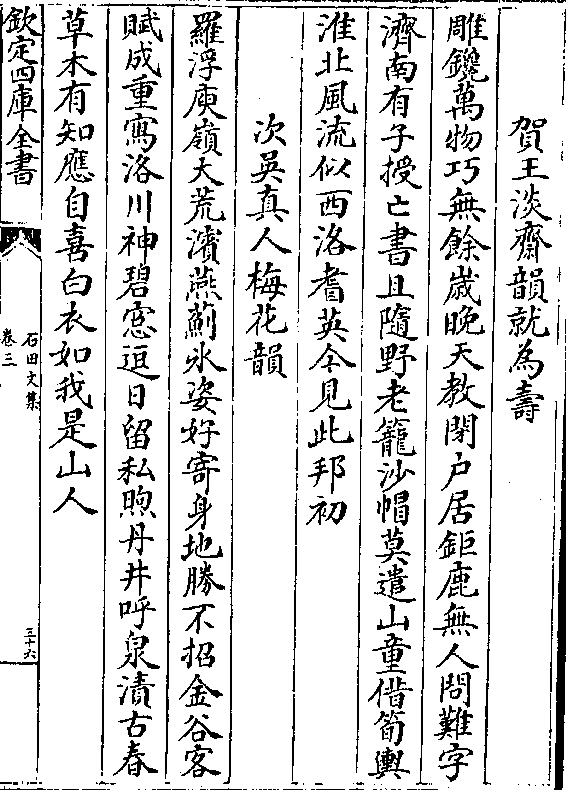 賀王淡齋韻就為壽
雕鑱萬物巧無餘歲晚天教閉户居鉅鹿無人問難字
濟南有子授亡書且隨野老籠沙帽莫遣山童借筍輿
淮北風流似西洛耆英今見此邦初
次吳真人梅花韻
羅浮庾嶺大荒濱燕薊氷姿好寄身地勝不招金谷客
賦成重寫洛川神碧窓逗日留私煦丹井呼泉漬古春
草木有知應自喜白衣如我是山人
欽定四庫全書
石田文集
卷三
三十六